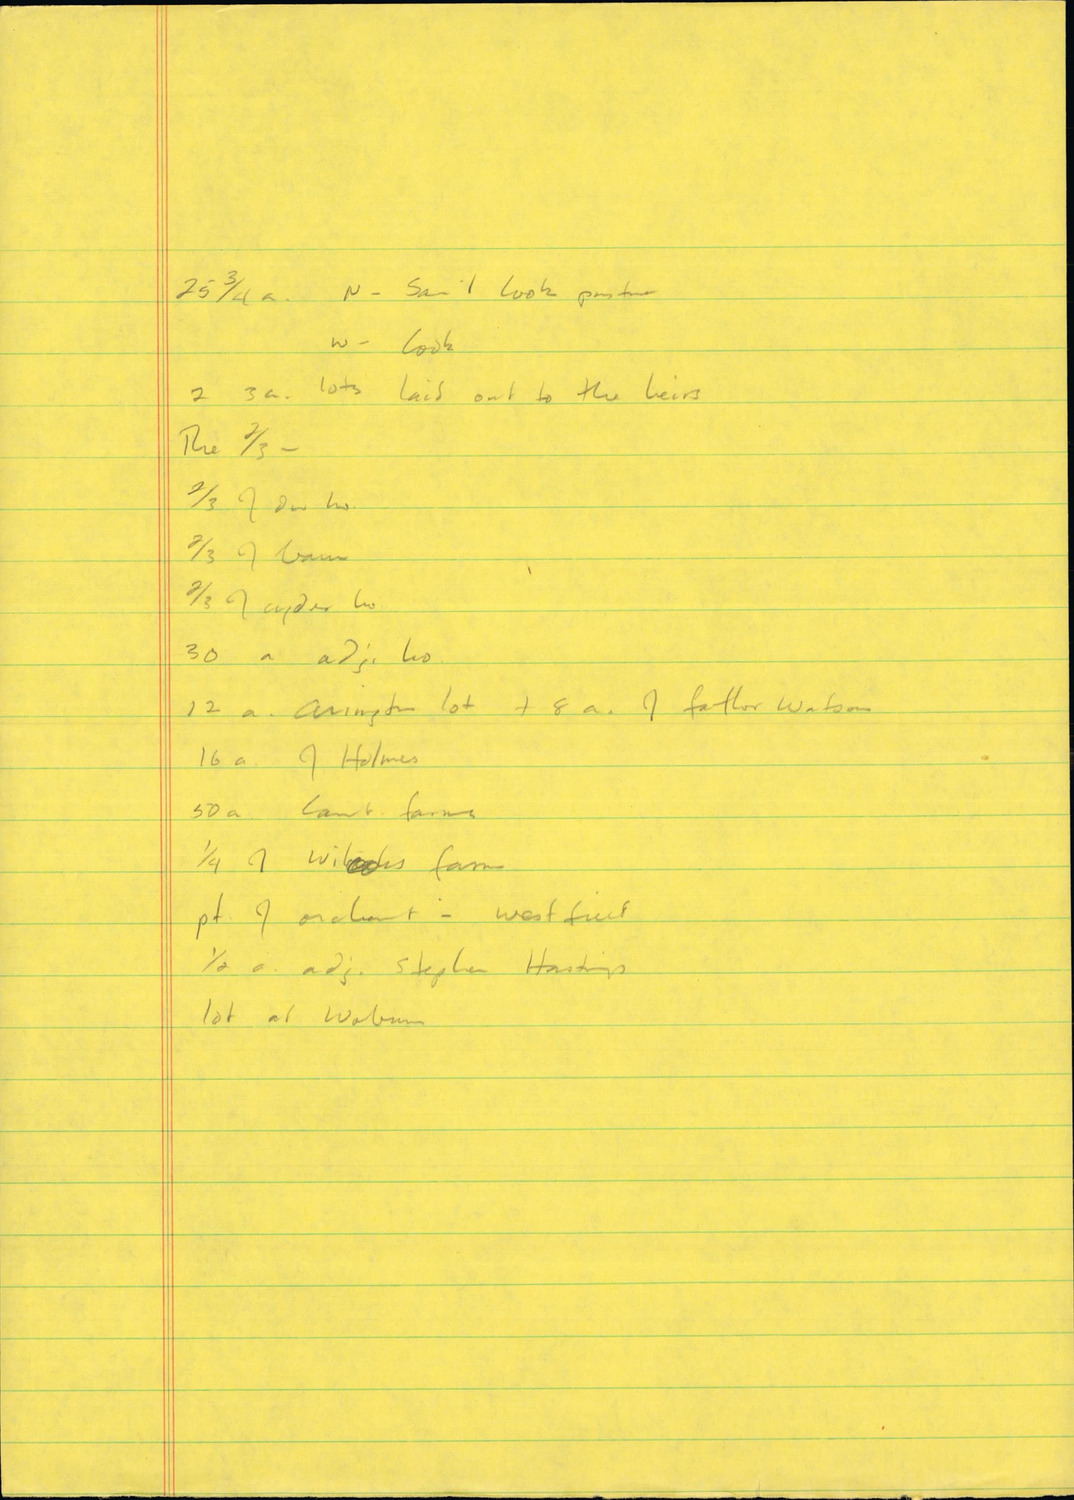 25 3/4 a. N - Sam'l Cook pasture
W - Cook
2 3a. lots laid out to the heirs
The 2/3 -
2/3 of dw ho.
2/3 of barn
2/3 of cyder ho
30 a adj. ho.
12 a. Arington lot + 8 a. of father Watson
16 a. of Holmes
50 a Camb. farms
1/4 of farm
pt. of orchard - west field
1/2 a. adj. Stephen Hastings
lot at Woburn